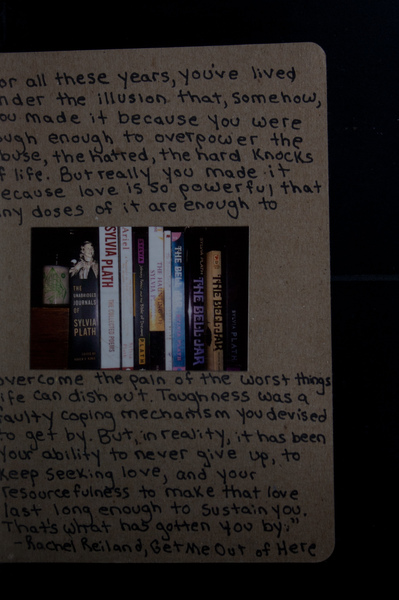 or all these years, you've lived
nder the illusion that, somehow,
ou made it because you were
ough enough to overpower the
buse, the hatred, the hard knocks
f life. But really you made it
ecause love is so powerful that
iny doses of it are enough to
THE
UNABRIDGED
JOURNALS
OF
SYLVIA
PLATH
SYLVIA PLATH
THE COLLECTED POEMS
Ariel
PLATH
THE BELL JAR
THE BELL JAR
SYLVIA PLATH
overcome the pain of the worst things
ife can dish out. Toughness was a
faulty coping mechanism you devised
to get by. But, in reality, it has been
your ability to never give up, to
keep seeking love, and your
resourcefulness to make that love
last long enough to sustain you.
That's what has gotten you by."
-Rachel Reiland, Get Me Out of Here